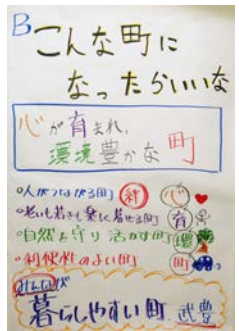 B
こんな町に
なったらいいな
心が育まれ、
環境豊かな町
○人がつながる町 絆 心
○老いも若きも楽に暮せる町 育
○自然を守り活かす町 環
○利便性のよい町 町
みんなが
暮らしやすい町 武豊